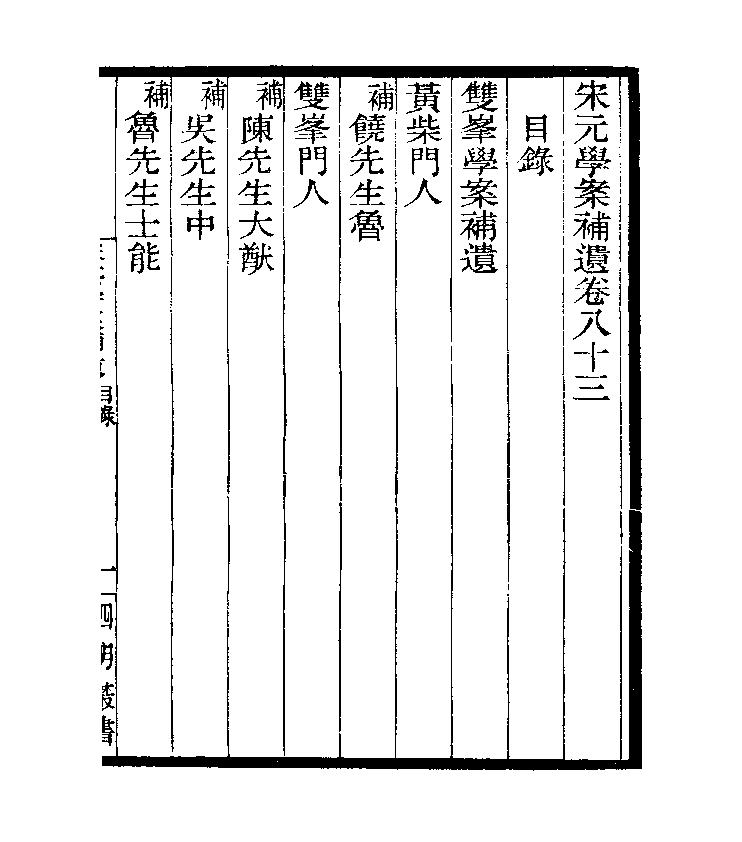 宋元學案補遺卷八十三
目錄
雙峯學案補遺
黃柴門人
補饒先生魯
雙峯門人
補陳先生大猷
補吳先生中
補魯先生士能
目錄 一 四明叢書